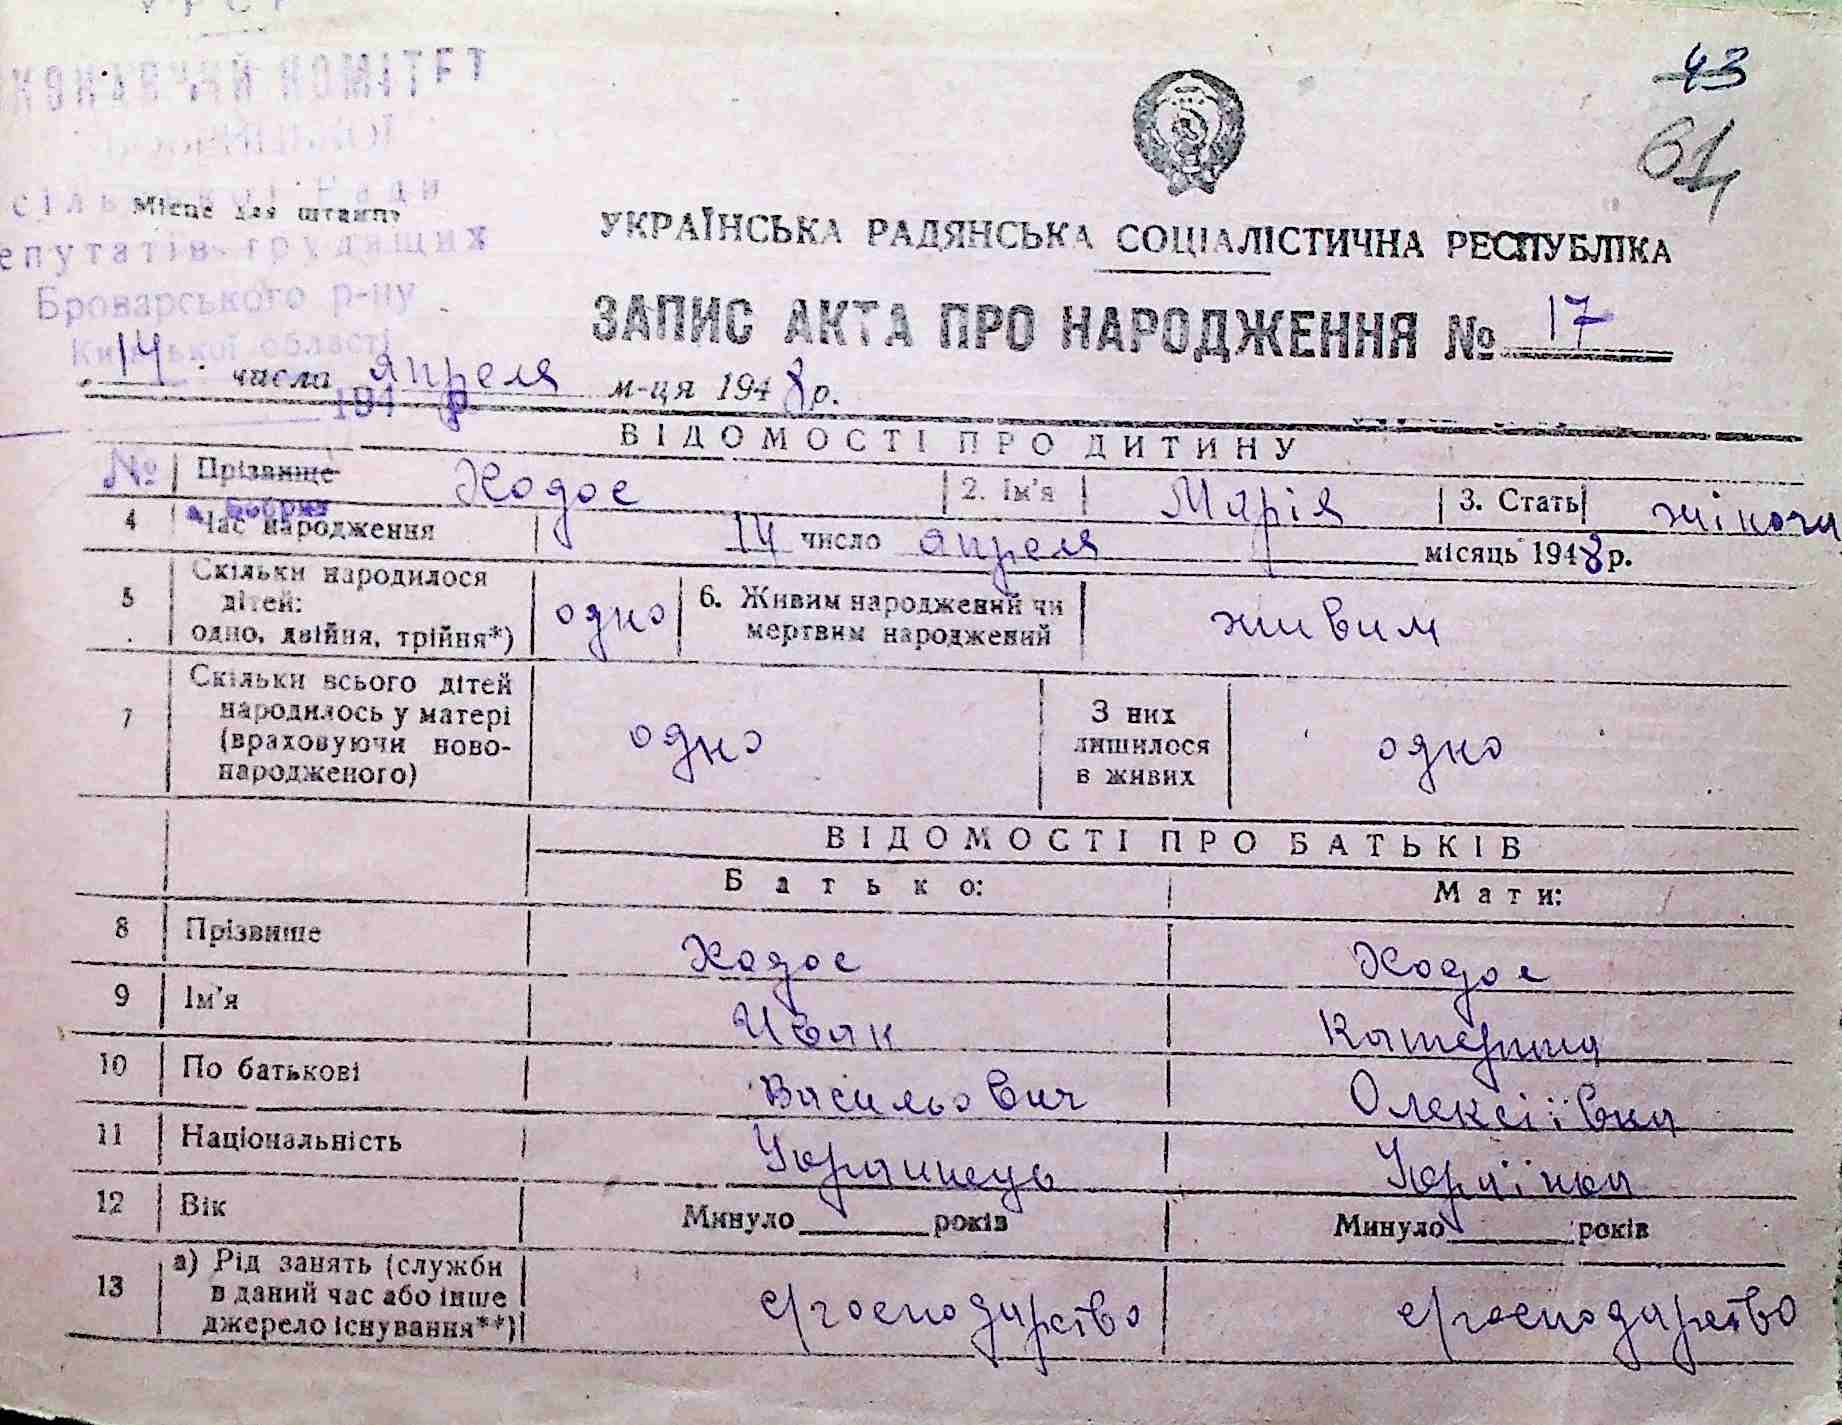 УРСР
43
КОНАВЧИЙ КОМІТЕТ
61
сільської Ради
Місце для штампу
УКРАЇНСЬКА РАДЯНСЬКА СОЦІАЛІСТИЧНА РЕСПУБЛІКА
епутатів трудящих
Броварського р-ну
ЗАПИС АКТА ПРО НАРОДЖЕННЯ № 17
Київської області
14 числа апреля м-ця 1948 р.
194 р
ВІДОМОСТІ ПРО ДИТИНУ
№ Прізвище Ходос 2. Ім'я Марія 3. Стать жіноча
4 Час народження 14 число апреля місяць 1948 р.
5 Скільки народилося дітей: одно, двійня, трійня*) одно 6. Живим народжений чи мертвим народжений живим
7 Скільки всього дітей народилось у матері (враховуючи ново-народженого) одно З них лишилося в живих одно
ВІДОМОСТІ ПРО БАТЬКІВ
Батько: Мати:
8 Прізвище Ходос Ходос
9 Ім'я Иван Катерина
10 По батькові Васильович Олексіївна
11 Національність Украинець Украінка
12 Вік Минуло років Минуло років
13 а) Рід занять (служби в даний час або інше джерело існування**) с/господарство с/господарство